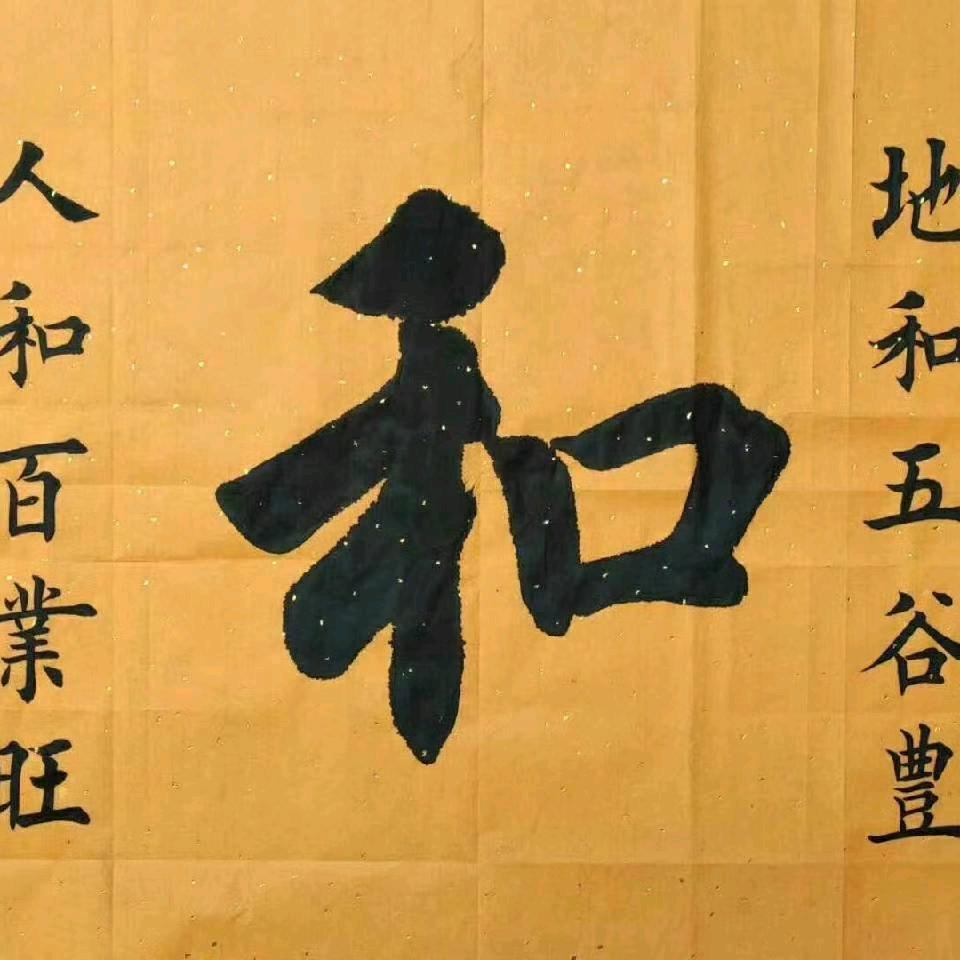 地和五谷豊
和
人和百業旺